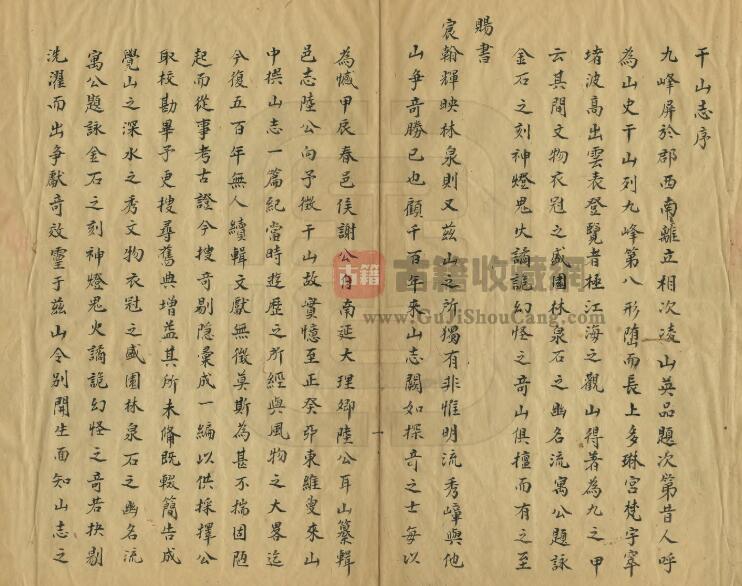 干山志序
九峰屏於郡西南離立相次凌山英品題次第昔人呼
為山史干山列九峰第八形隋而長上多琳宮梵宇窣
堵波高出雲表登覽者極江海之觀山得著為九之甲
云其間文物衣冠之盛園林泉石之幽名流寓公題詠
金石之刻神燈鬼火譎詭幻怪之奇山俱擅而有之至
賜書
宸翰輝映林泉則又茲山之所獨有非惟明流秀嶂與他
山爭奇勝已也顧千百年來山志闕如探奇之士每以
為憾甲辰春邑侯謝公自南延大理鄉陸公耳山纂輯
邑志陸公向予徵干山故實憶至正癸卯東維叟來山
中撰山志一篇紀當時遊歷之所經與風物之大畧迄
今復五百年無人續輯文獻無徵莫斯為甚不揣固陋
起而從事考古證今搜奇剔隱彙成一編以供採擇公
取校勘畢予更搜尋舊典增益其所未偹既輟簡告成
覺山之深水之秀文物衣冠之盛園林泉石之幽名流
寓公題詠金石之刻神燈鬼火譎詭幻怪之奇若抉剔
洗濯而出爭獻奇效靈于茲山令別開生面知山志之
一
古籍
古籍收藏网
www.GuJiShouCang.com